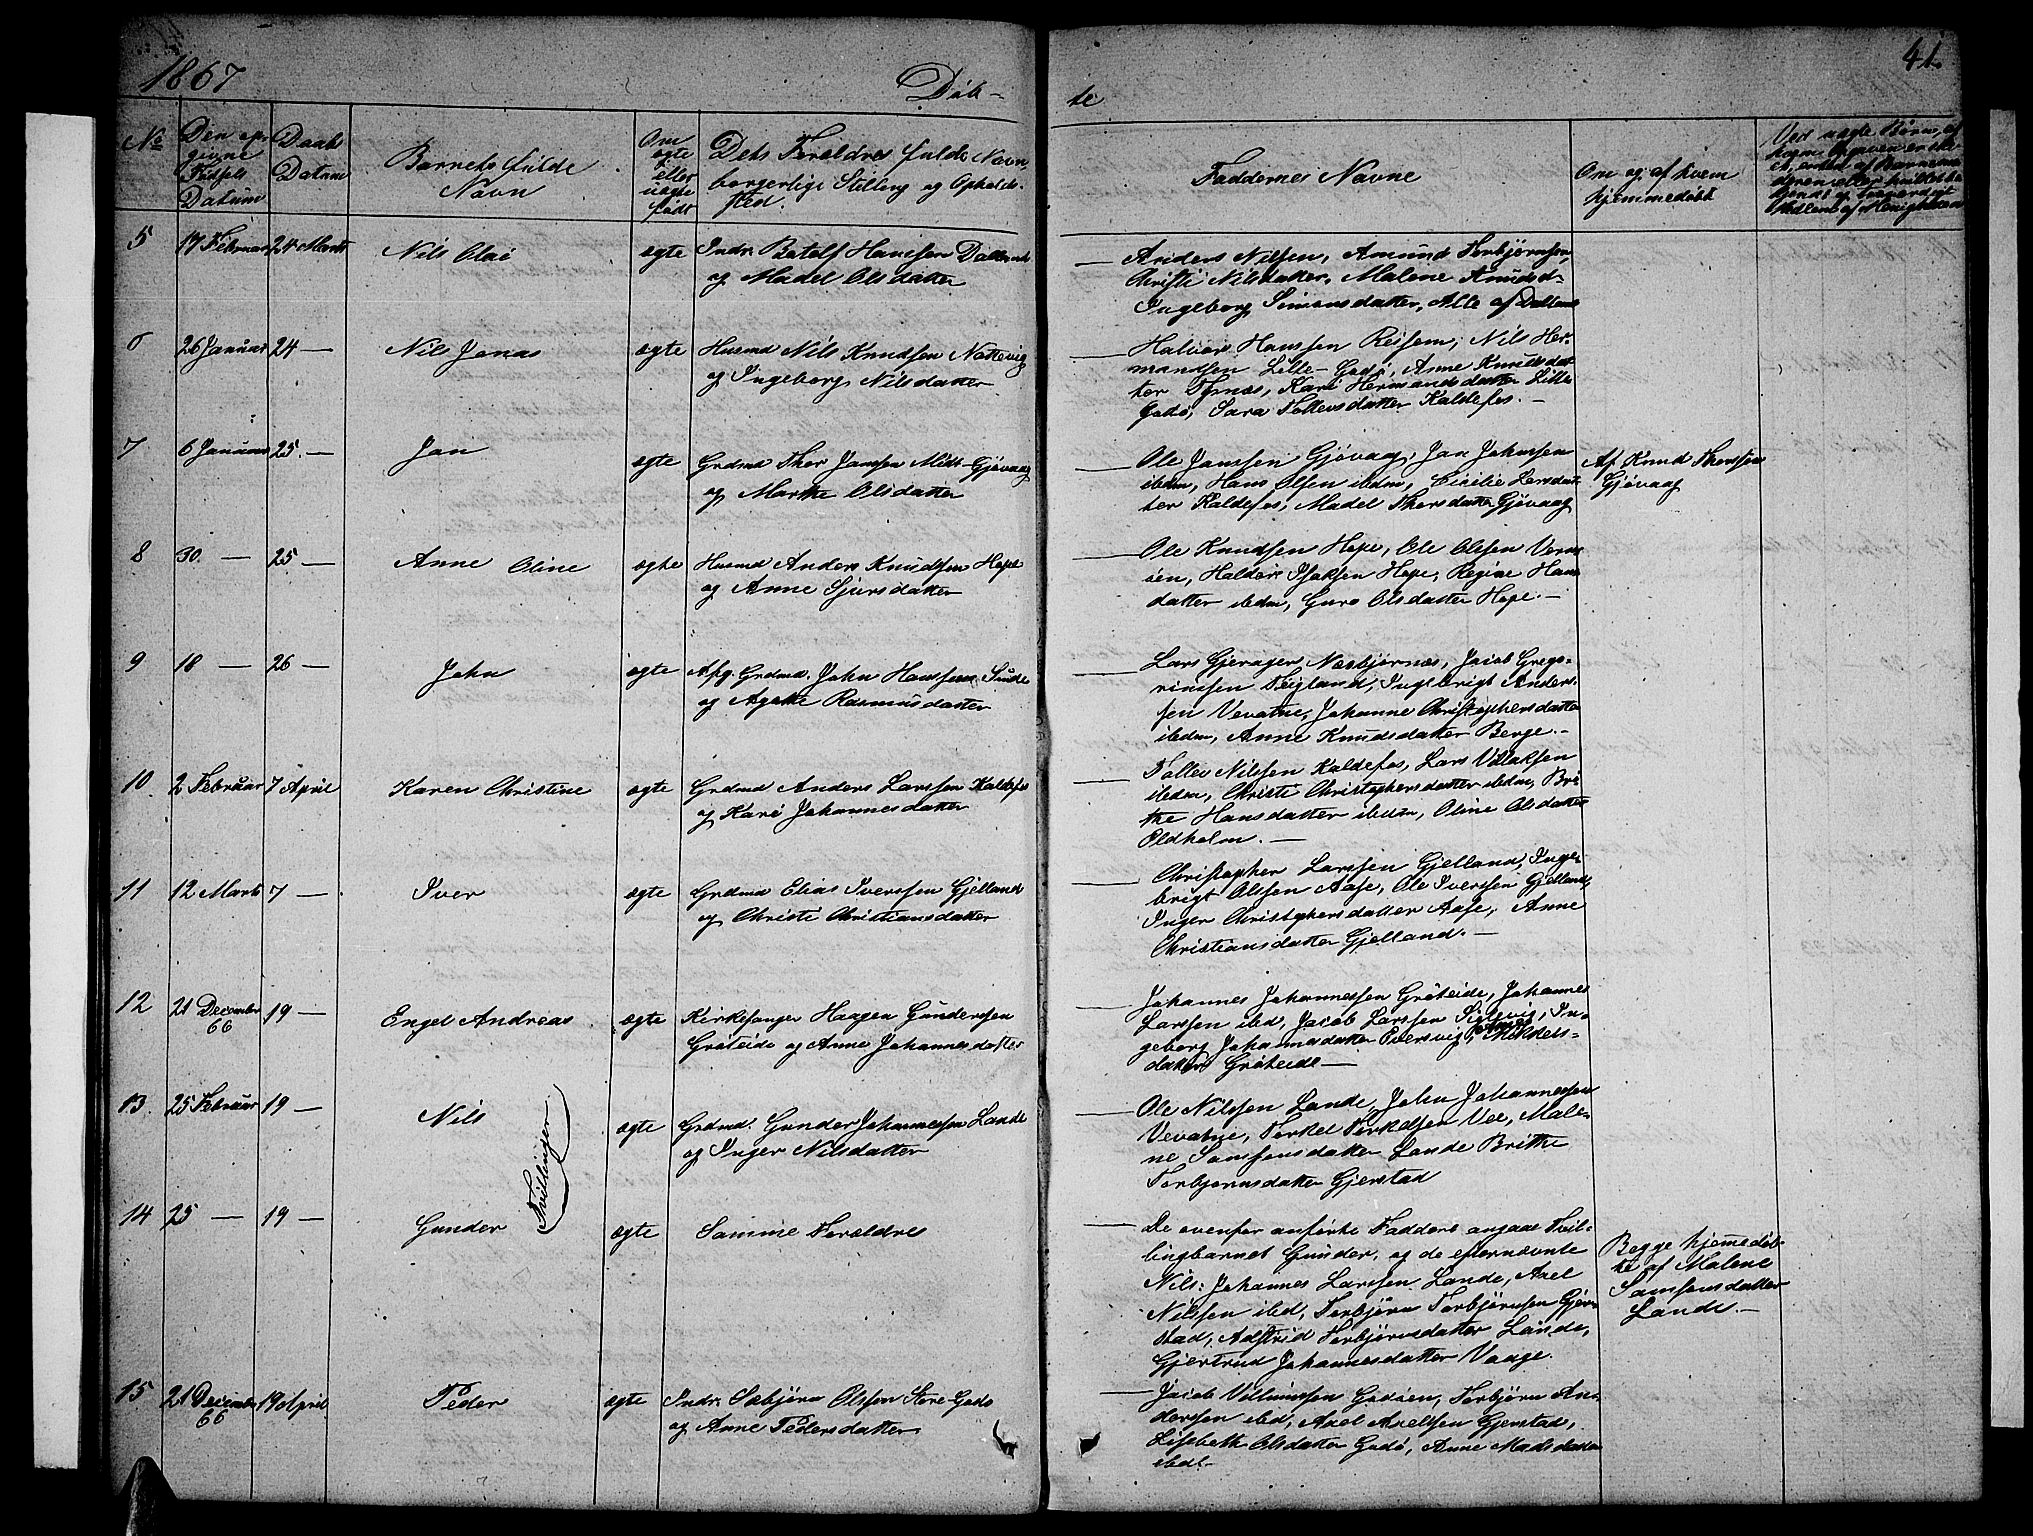 1867
Døb-
te
41.
No
Den op-
givne
Fødsels
Datum
Daabs
Datum
Barnets fulde
Navn
Om
ægte
eller
uægte
født
Dets Forældres fulde Navn,
borgerlige Stilling og Opholds-
sted.
Faddernes Navne
Om og af hvem
hjemmedøbt
Ved uægte Børn, af
5
17 Februar
24 Marts
Nils Olai
ægte
Indr. Botolf Hanssen
og Madel Olsdatter
Anders Nilsen, Amund Torbjørnsen
Christi Nilsdatter, Malene Knudsd-
Ingeborg Simonsdatter, Alle af
6
26 Januar
24 —
Nils Jonas
ægte
Husmd Nils Knudsen Nottevig
og Ingeborg Nilsdatter
Halvor Hanssen Reisem, Nils Her-
mandsen Lille-Godø, Anne Knudsdat-
ter Tyrnes, Kari Hermandsdatter Lille
Godø, Sara Tollevsdatter Kaldefos. —
7
6 Januar
25. —
Jan
ægte
Grdmd Thor Janssen Midt-Gjøvaag
og Marthe Olsdatter
Ole Janssen Gjøvaag, Jan Johnsen
ibdm, Hans Olsen ibdm, Cicilie Larsdat-
ter Kaldefos, Madel Thorsdatter Gjøvaag
Af Knud Thorssen
Gjøvaag
8
30. —
25 —
Anne Oline
ægte
Husmd Anders Knudsen Hope
og Anne Sjursdatter
Ole Knudsen Hope, Ole Olssen
Haldor Isaksen Hope, Regine Hans
datter ibdm, Guro Olsdatter Hope. —
9
18 —
26 —
John
ægte
Afg. Grdmd. John Hanssen Sunde
og Agathe Rasmusdatter
Lars Gjerager Næsbjørnæs, Jacob Grego-
riussen Teigland, Ingebrigt Anders-
sen Vevatne, Johanne Christophersdatter
ibdm, Anne Knudsdatter Berge. —
10
2 Februar
7 April
Karen Christine
ægte
Grdmd Anders Larssen Kaldefos
og Kari Johannesdatter
Tollev Nilssen Kaldefos, Lars
ibdm, Christi Christophersdatter ibdm, Bri-
the Hansdatter ibdm, Oline Olsdatter
Oldholm. —
11
12 Marts
7 —
Iver
ægte
Grdmd Elias Iverssen Gjelland
og Christi Christiansdatter
Christopher Larssen Gjelland, Inge-
brigt Olssen Aase, Ole Iverssen Gjelland,
Inger Christophersdatter Aase, Anne
Christiansdatter Gjelland. —
12
21 December
66
19 —
Engel Andreas
ægte
Kirkesanger Haagen Gunderssen
Grøteide og Anne Johannesdatter
Johannes Johannessen Grøteide, Johannes
Larssen ibd, Jacob Larssen In-
geborg Johannesdatter Iversvig, Anne Mikkels-
datter Grøteide —
13.
25 Februar
19 —
Nils
Tvillinger
ægte
Grdmd. Gunder Johannessen Lande
og Inger Nilsdatter
Ole Nilssen Lande, John Johannessen
Vevatne, Torkel Torkelsen Vee, Male-
ne Samsonsdatter Lande Brithe
Torbjørnsdatter Gjerstad
14
25 —
19 —
Gunder
ægte
Samme Forældre
De ovenfor anførte Faddere angaae Tvil-
lingbarnet Gunder, og de efternævnte
Nils: Johannes Larssen Lande, Axel
Nilssen ibd, Torbjørn Torbjørnsen Gjer-
stad, Adstrid Torbjørnsdatter Lande,
Gjertrud Johannesdatter Vaage.
Begge hjemmedøb-
te af Malene
Samsonsdatter
Lande. —
15
21 December
66
19 April
Peder
ægte
Indr. Sæbjørn Olssen Store-Godø
og Anne Pedersdatter
Jacob Villumssen Godøen, Torbjørn An-
derssen ibd, Axel Axelssen Gjerstad,
Lisebeth Olsdatter Godø, Anne Madsdatter
ibd. —